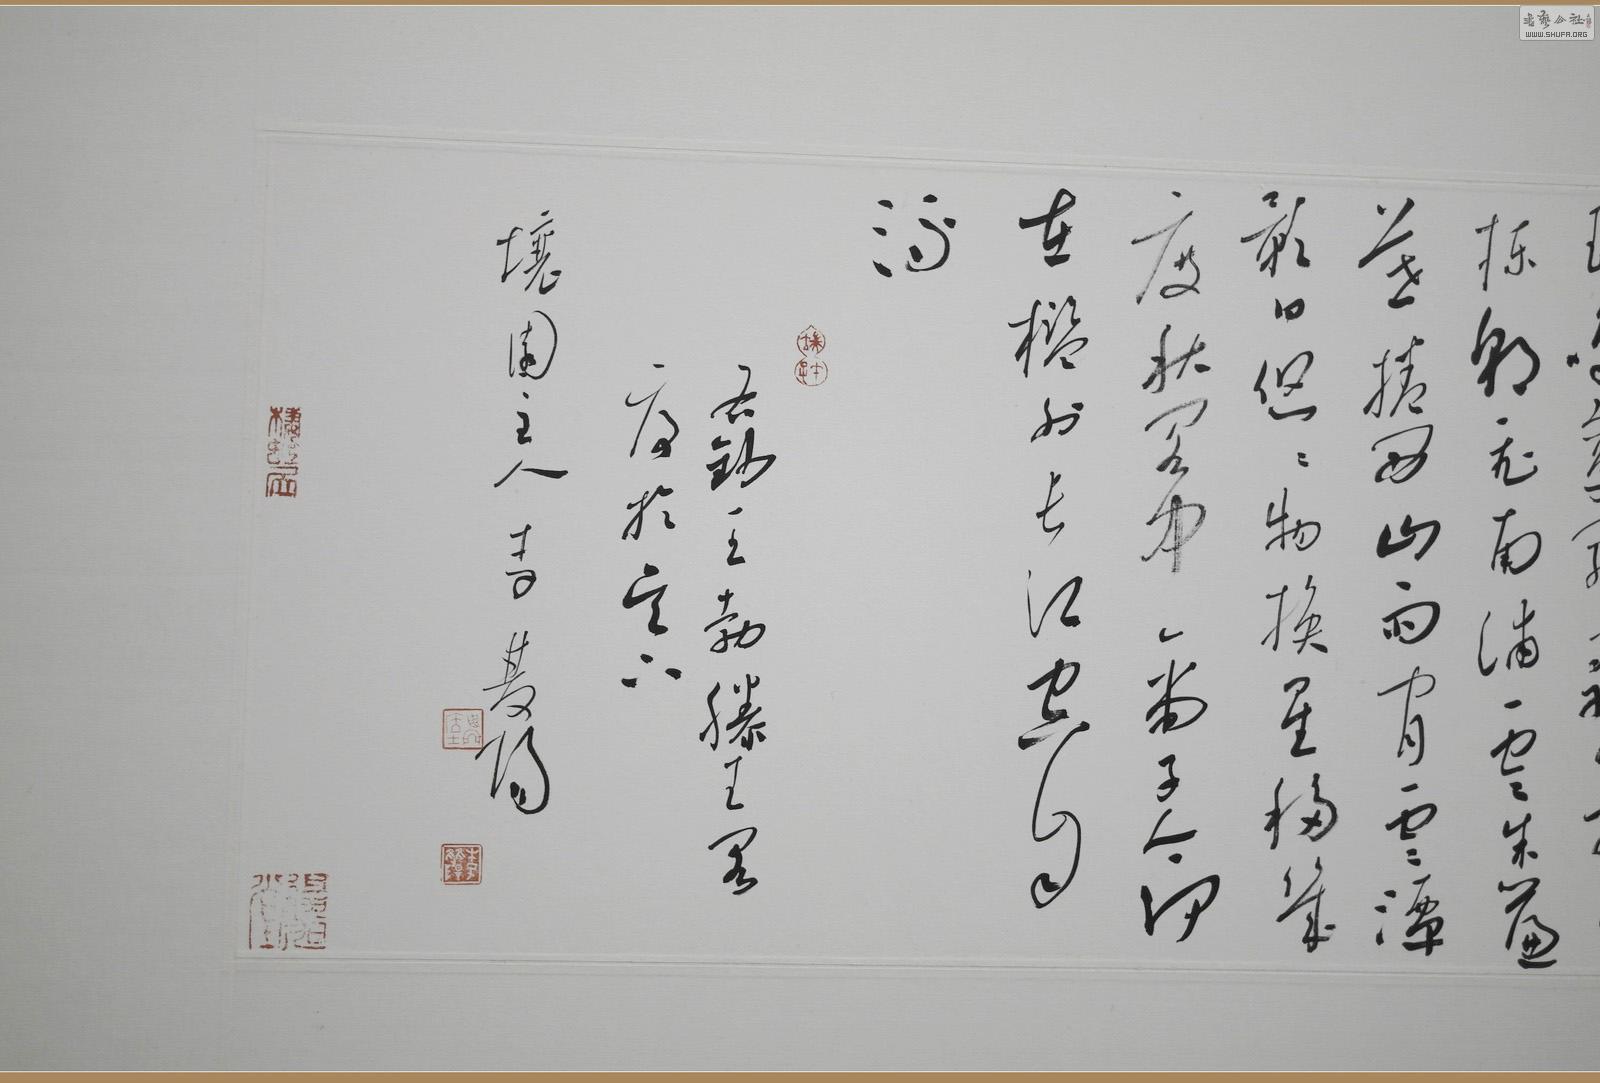 書藝公社
WWW.SHUFA.ORG
棟朝飛南浦雲朱簾
暮捲西山雨閒雲潭
影日悠〻物換星移幾
度秋閣中帝子今何
在檻外長江空自
流
右錄王勃滕王閣
序於
壤園主人李雙陽